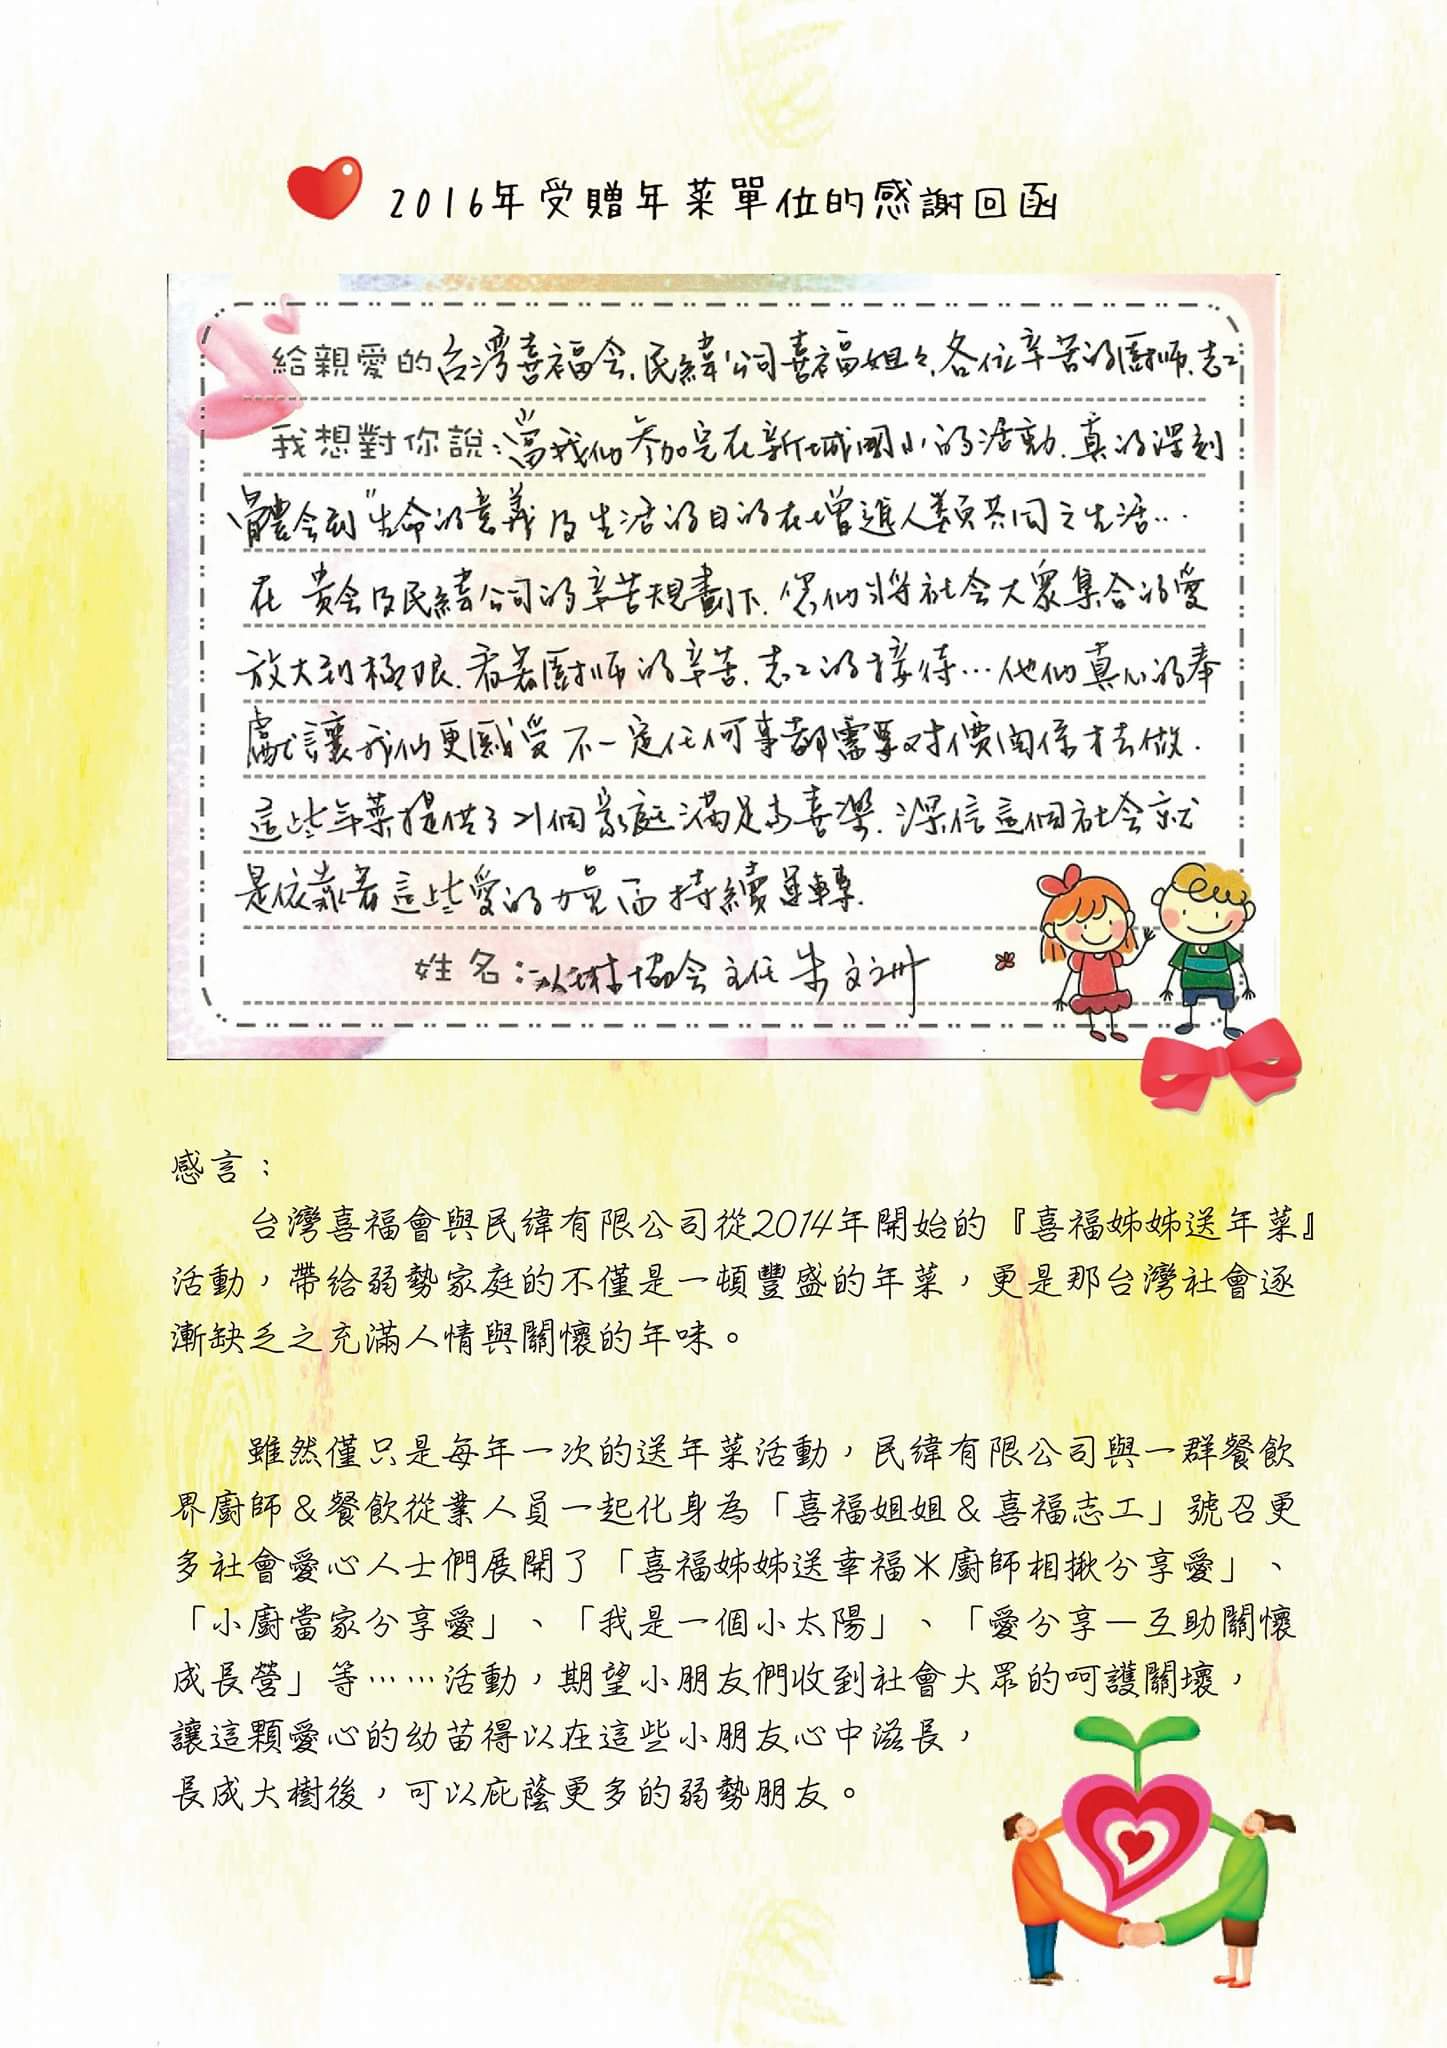 2016年受贈年菜單位的感謝回函
給親愛的台湾喜福会、民緯公司喜福姐々、各位辛苦的廚师、志工
我想對你說：當我们参加完在新城國小的活動、真的深刻
體会到"生命的意義及生活的目的在增進人類共同之生活…
在 貴会及民緯公司的辛苦規劃下、您们将社会大眾集合的愛
放大到極限、看著廚师的辛苦、志工的接待…他们真心的奉
獻讓我们更感受不一定任何事都需要对價関係才去做．
這些年菜提供了21個家庭滿足的喜樂、深信這個社会就
是依靠著這些愛的力量而持續運轉．
姓名：協会主任 朱文洲
感言：
台灣喜福會與民緯有限公司從2014年開始的『喜福姊姊送年菜』
活動，帶給弱勢家庭的不僅是一頓豐盛的年菜，更是那台灣社會逐
漸缺乏之充滿人情與關懷的年味。
雖然僅只是每年一次的送年菜活動，民緯有限公司與一群餐飲
界廚師＆餐飲從業人員一起化身為「喜福姐姐＆喜福志工」號召更
多社會愛心人士們展開了「喜福姊姊送幸福＊廚師相揪分享愛」、
「小廚當家分享愛」、「我是一個小太陽」、「愛分享－互助關懷
成長營」等……活動，期望小朋友們收到社會大眾的呵護關壞，
讓這顆愛心的幼苗得以在這些小朋友心中滋長，
長成大樹後，可以庇蔭更多的弱勢朋友。